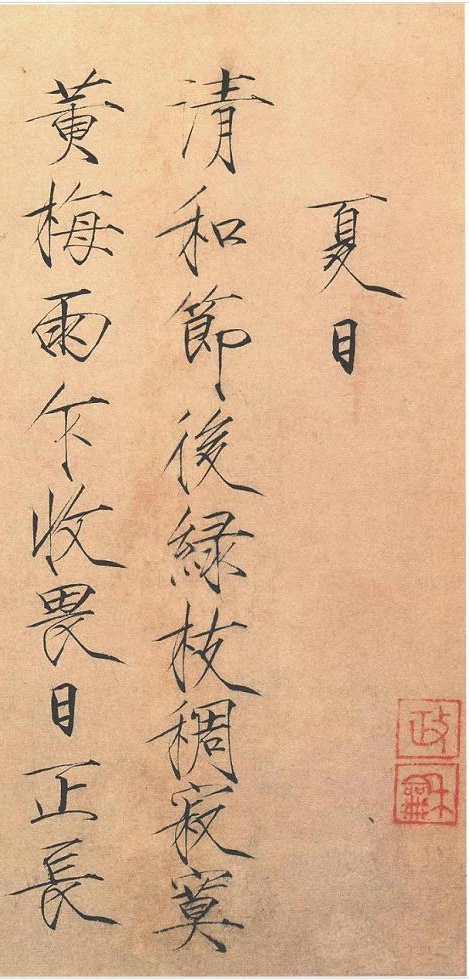 夏日
清和節後緑枝稠寂寞
黄梅雨乍收畏日正長
政龢